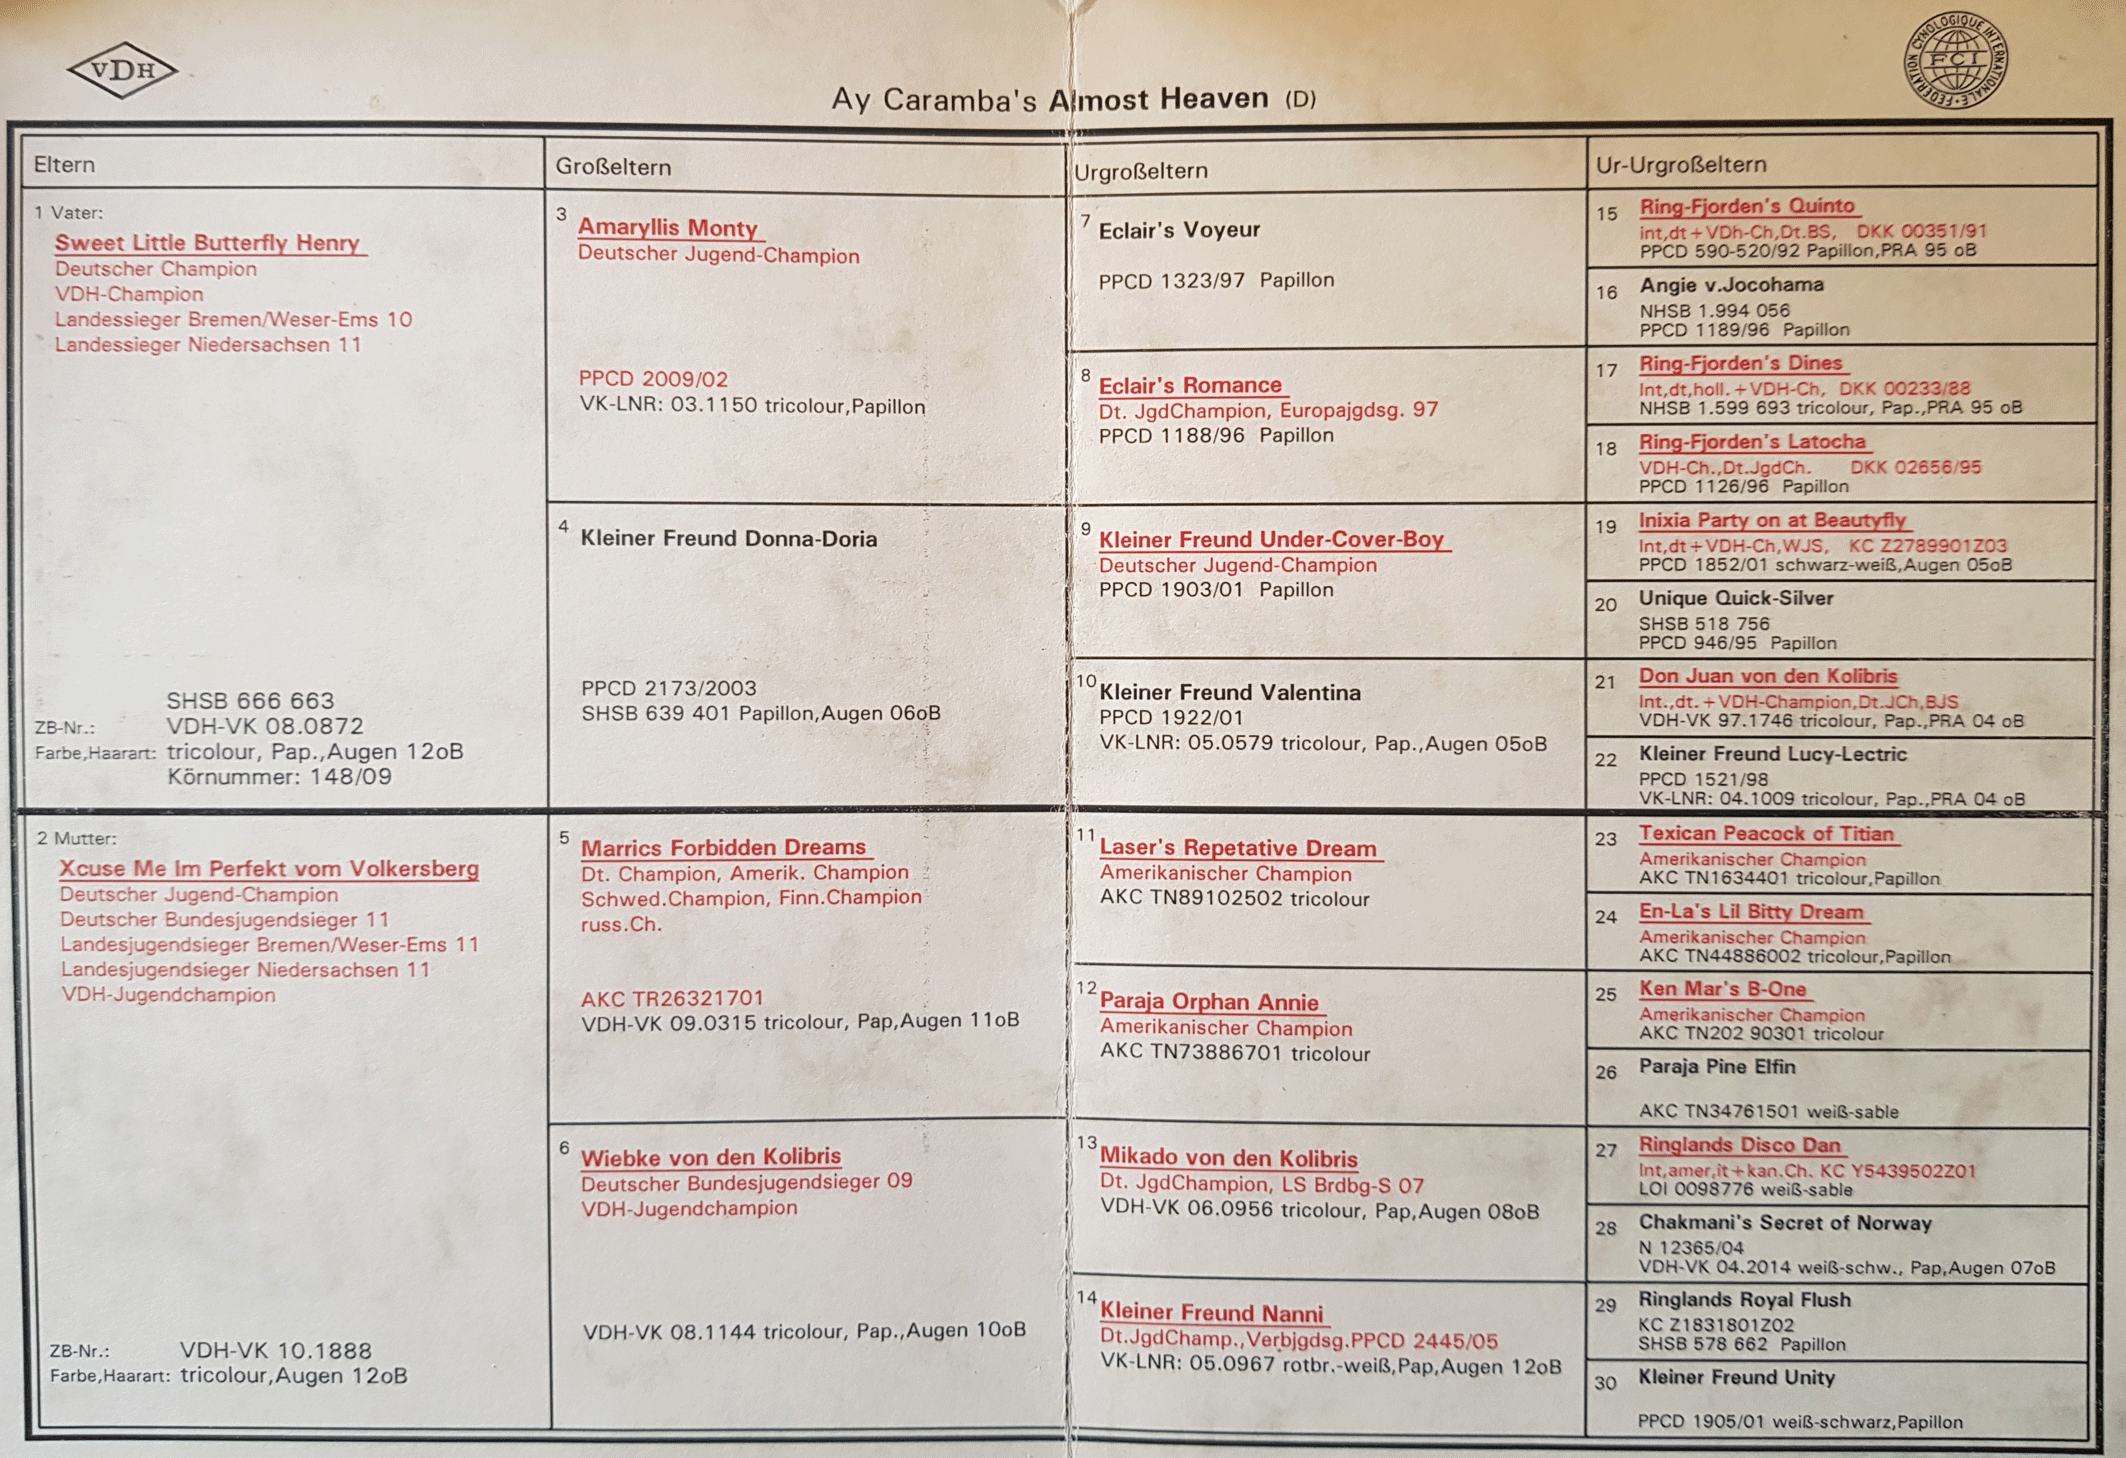 VDH
FEDERATION CYNOLOGIQUE INTERNATIONALE
FCI
Ay Caramba's Almost Heaven (D)
Eltern
1 Vater:
Sweet Little Butterfly Henry
Deutscher Champion
VDH-Champion
Landessieger Bremen/Weser-Ems 10
Landessieger Niedersachsen 11
SHSB 666 663
ZB-Nr.: VDH-VK 08.0872
Farbe,Haarart: tricolour, Pap.,Augen 12oB
Körnummer: 148/09
2 Mutter:
Xcuse Me Im Perfekt vom Volkersberg
Deutscher Jugend-Champion
Deutscher Bundesjugendsieger 11
Landesjugendsieger Bremen/Weser-Ems 11
Landesjugendsieger Niedersachsen 11
VDH-Jugendchampion
ZB-Nr.: VDH-VK 10.1888
Farbe,Haarart: tricolour,Augen 12oB
Großeltern
3 Amaryllis Monty
Deutscher Jugend-Champion
PPCD 2009/02
VK-LNR: 03.1150 tricolour,Papillon
4 Kleiner Freund Donna-Doria
PPCD 2173/2003
SHSB 639 401 Papillon,Augen 06oB
5 Marrics Forbidden Dreams
Dt. Champion, Amerik. Champion
Schwed.Champion, Finn.Champion
russ.Ch.
AKC TR26321701
VDH-VK 09.0315 tricolour, Pap,Augen 11oB
6 Wiebke von den Kolibris
Deutscher Bundesjugendsieger 09
VDH-Jugendchampion
VDH-VK 08.1144 tricolour, Pap.,Augen 10oB
Urgroßeltern
7 Eclair's Voyeur
PPCD 1323/97 Papillon
8 Eclair's Romance
Dt. JgdChampion, Europajgdsg. 97
PPCD 1188/96 Papillon
9 Kleiner Freund Under-Cover-Boy
Deutscher Jugend-Champion
PPCD 1903/01 Papillon
10 Kleiner Freund Valentina
PPCD 1922/01
VK-LNR: 05.0579 tricolour, Pap.,Augen 05oB
11 Laser's Repetative Dream
Amerikanischer Champion
AKC TN89102502 tricolour
12 Paraja Orphan Annie
Amerikanischer Champion
AKC TN73886701 tricolour
13 Mikado von den Kolibris
Dt. JgdChampion, LS Brdbg-S 07
VDH-VK 06.0956 tricolour, Pap,Augen 08oB
14 Kleiner Freund Nanni
Dt.JgdChamp.,Verbjgdsg.PPCD 2445/05
VK-LNR: 05.0967 rotbr.-weiß,Pap,Augen 12oB
Ur-Urgroßeltern
15 Ring-Fjorden's Quinto
int,dt+VDh-Ch,Dt.BS, DKK 00351/91
PPCD 590-520/92 Papillon,PRA 95 oB
16 Angie v.Jocohama
NHSB 1.994 056
PPCD 1189/96 Papillon
17 Ring-Fjorden's Dines
Int,dt,holl.+VDH-Ch, DKK 00233/88
NHSB 1.599 693 tricolour, Pap.,PRA 95 oB
18 Ring-Fjorden's Latocha
VDH-Ch.,Dt.JgdCh. DKK 02656/95
PPCD 1126/96 Papillon
19 Inixia Party on at Beautyfly
Int,dt+VDH-Ch,WJS, KC Z2789901Z03
PPCD 1852/01 schwarz-weiß,Augen 05oB
20 Unique Quick-Silver
SHSB 518 756
PPCD 946/95 Papillon
21 Don Juan von den Kolibris
Int.,dt.+VDH-Champion,Dt.JCh,BJS
VDH-VK 97.1746 tricolour, Pap.,PRA 04 oB
22 Kleiner Freund Lucy-Lectric
PPCD 1521/98
VK-LNR: 04.1009 tricolour, Pap.,PRA 04 oB
23 Texican Peacock of Titian
Amerikanischer Champion
AKC TN1634401 tricolour,Papillon
24 En-La's Lil Bitty Dream
Amerikanischer Champion
AKC TN44886002 tricolour,Papillon
25 Ken Mar's B-One
Amerikanischer Champion
AKC TN202 90301 tricolour
26 Paraja Pine Elfin
AKC TN34761501 weiß-sable
27 Ringlands Disco Dan
Int,amer,it+kan.Ch. KC Y5439502Z01
LOI 0098776 weiß-sable
28 Chakmani's Secret of Norway
N 12365/04
VDH-VK 04.2014 weiß-schw., Pap,Augen 07oB
29 Ringlands Royal Flush
KC Z1831801Z02
SHSB 578 662 Papillon
30 Kleiner Freund Unity
PPCD 1905/01 weiß-schwarz,Papillon